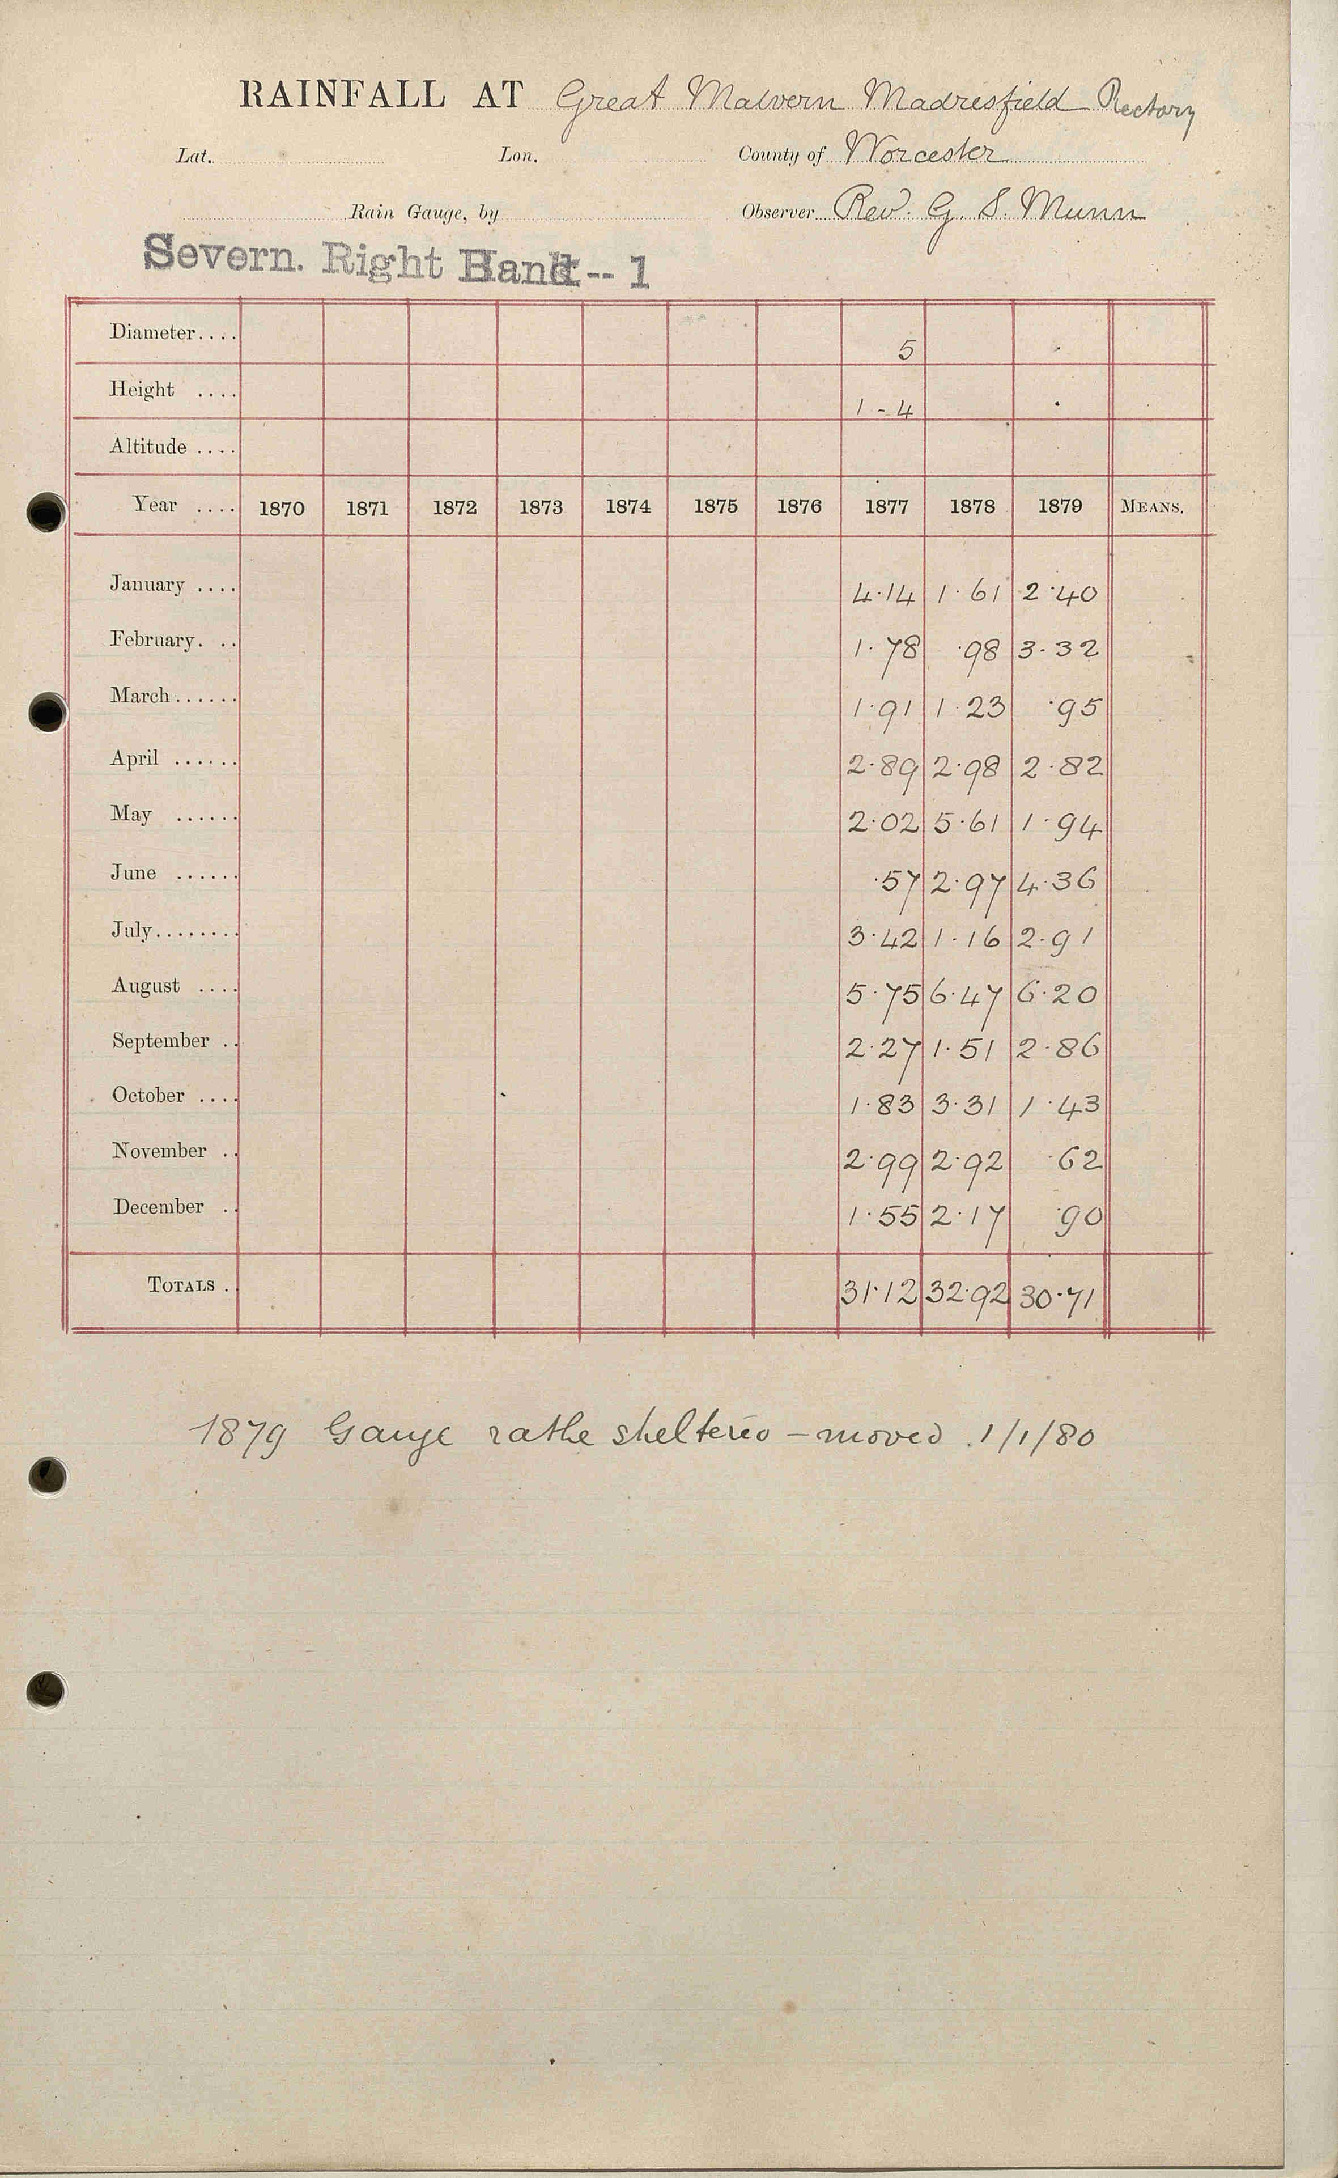 RAINFALL AT Great Malvern Madresfield Rectory
Lat. Lon. County of Worcester
Rain Gauge, by Observer Rev. G. S. Munn
Severn. Right Bank -- 1
Diameter.... 5
Height .... 1-4
Altitude ....
Year .... 1870 1871 1872 1873 1874 1875 1876 1877 1878 1879 MEANS.
January .... 4.14 1.61 2.40
February. .. 1.78 .98 3.32
March...... 1.91 1.23 .95
April ...... 2.89 2.98 2.82
May ...... 2.02 5.61 1.94
June ...... .57 2.97 4.36
July........ 3.42 1.16 2.91
August .... 5.75 6.47 6.20
September .. 2.27 1.51 2.86
October .... 1.83 3.31 1.43
November .. 2.99 2.92 .62
December .. 1.55 2.17 .90
TOTALS . 31.12 32.92 30.71
1879 Gauge rathe sheltered - moved 1/1/80